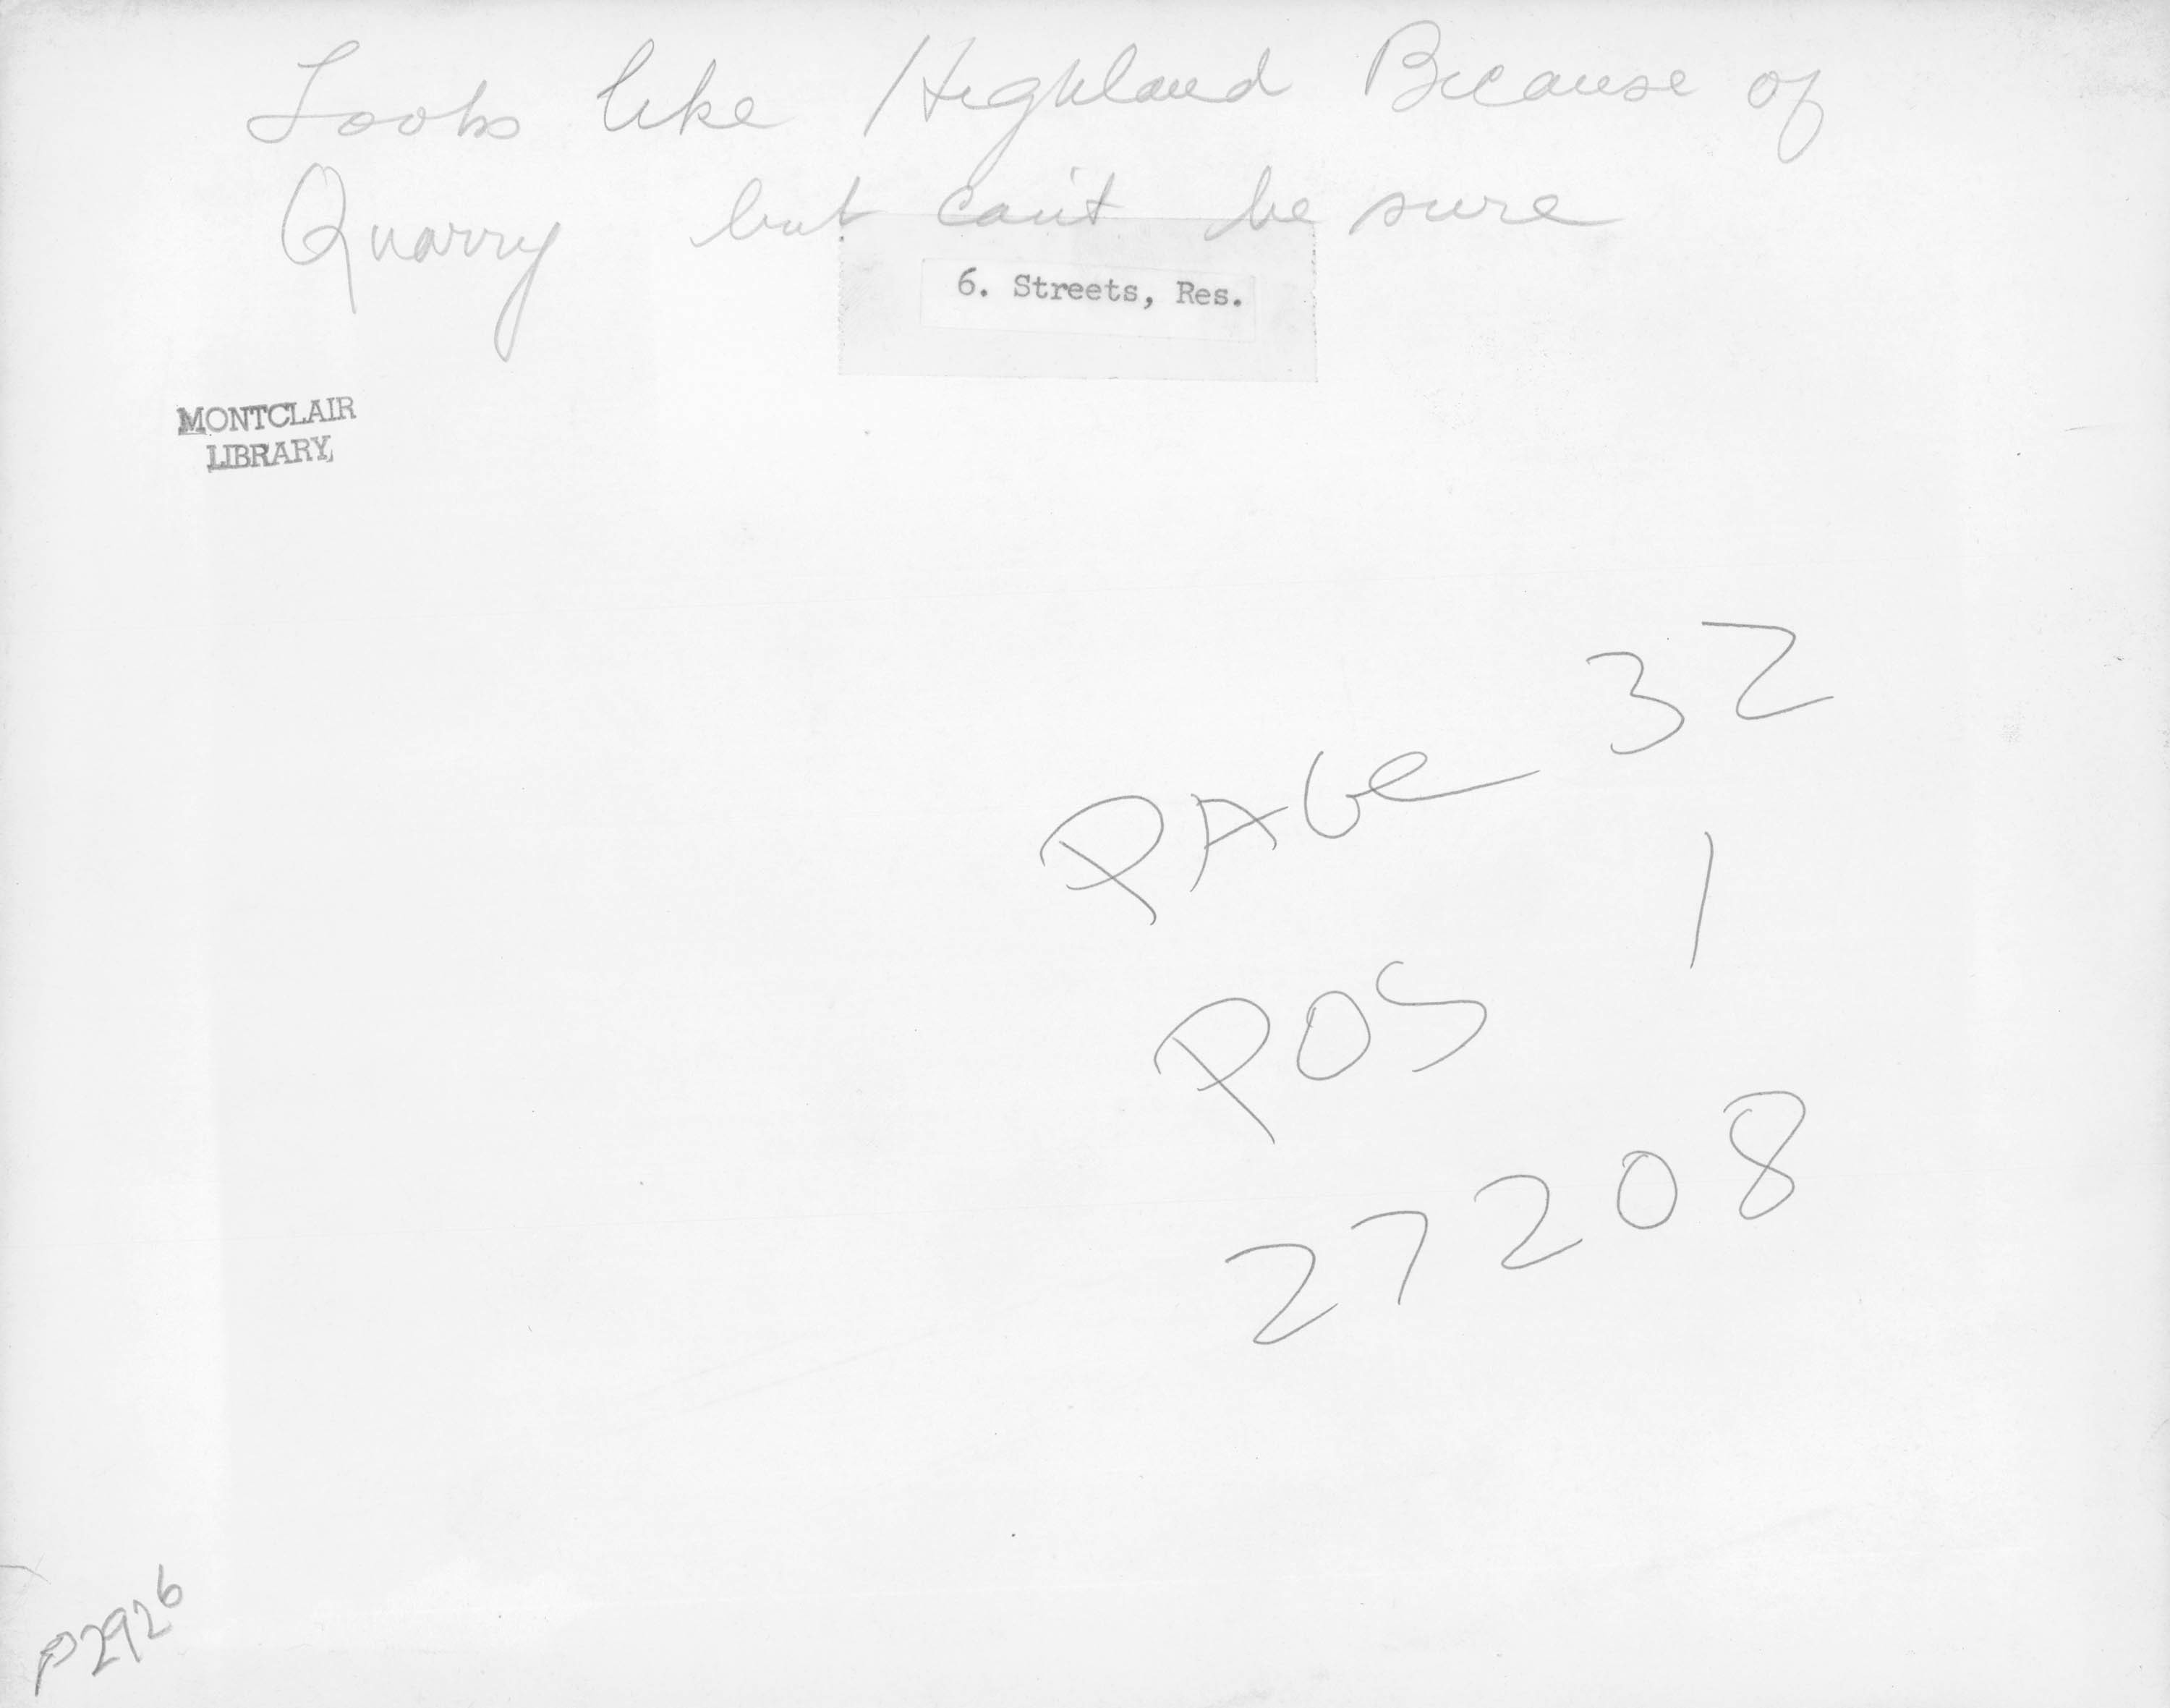 Looks like Highland Because of
Quarry but can't be sure
6. Streets, Res.
MONTCLAIR
LIBRARY
PAGe 32
POS 1
27208
P2926